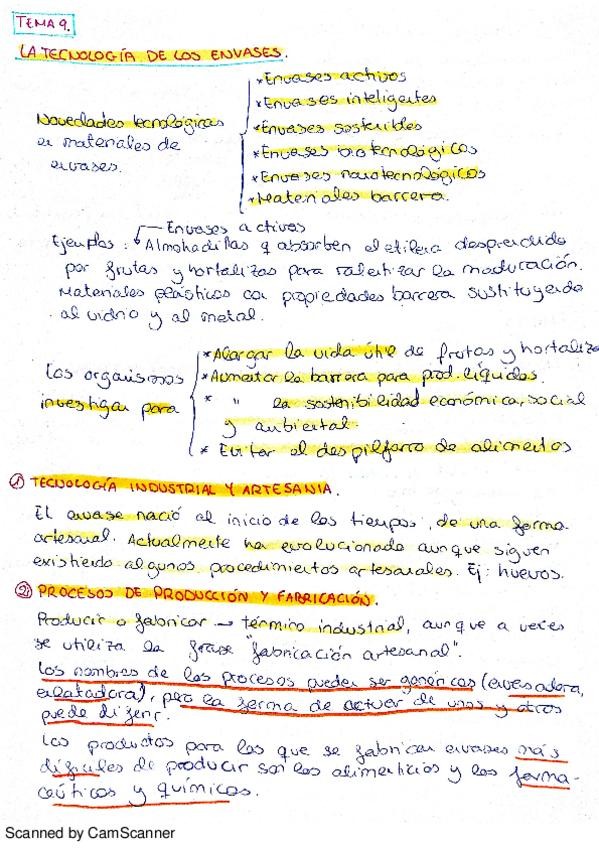 TEMA 9.
LA TECNOLOGÍA DE LOS ENVASES.
Novedades tecnológicas
en materiales de
envases.
* Envases activos
* Envases inteligentes
* Envases sostenibles
* Envases biotecnológicos
* Envases nanotecnológicos
* Materiales barrera.
Envases activos
Ejemplos: Almohadillas q absorben el etileno desprendido
por frutas y hortalizas para ralentizar la maduración.
Materiales plásticos con propiedades barrera sustituyendo
al vidrio y al metal.
Los organismos
investigan para
* Alargar la vida útil de frutas y hortaliza
* Aumentar la barrera para prod. líquidos.
* " la sostenibilidad económica, social
y ambiental.
* Evitar el despilfarro de alimentos
1) TECNOLOGÍA INDUSTRIAL Y ARTESANIA.
El envase nació al inicio de los tiempos, de una forma
artesanal. Actualmente ha evolucionado aunque siguen
existiendo algunos procedimientos artesanales. Ej: huevos.
2) PROCESOS DE PRODUCCIÓN Y FABRICACIÓN.
Producir o fabricar → término industrial, aunque a veces
se utiliza la frase "fabricación artesanal".
Los nombres de los procesos pueden ser genéricos (envasadora,
enlatadora), pero la forma de actuar de unos y otros
puede diferir.
Los productos para los que se fabrican envases más
difíciles de producir son los alimenticios y los farma-
céuticos y químicos.
Scanned by CamScanner